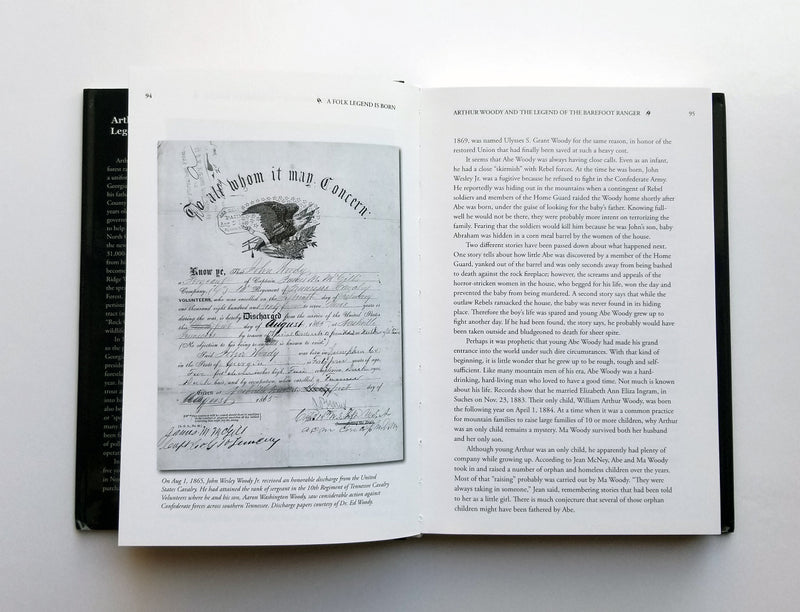 94
A FOLK LEGEND IS BORN
To all whom it may Concern:
Know ye, That John Woody
VOLUNTEERS,
Discharged from the service of the United States
August 1865
Said John Woody
in the State of Georgia
August 1865
On Aug 1, 1865, John Wesley Woody Jr. received an honorable discharge from the United
States Cavalry. He had attained the rank of sergeant in the 10th Regiment of Tennessee Cavalry
Volunteers where he and his son, Aaron Washington Woody, saw considerable action against
Confederate forces across southern Tennessee. Discharge papers courtesy of Dr. Ed Woody.
ARTHUR WOODY AND THE LEGEND OF THE BAREFOOT RANGER
95
1869, was named Ulysses S. Grant Woody for the same reason, in honor of the
restored Union that had finally been saved at such a heavy cost.
It seems that Abe Woody was always having close calls. Even as an infant,
he had a close "skirmish" with Rebel forces. At the time he was born, John
Wesley Jr. was a fugitive because he refused to fight in the Confederate Army.
He reportedly was hiding out in the mountains when a contingent of Rebel
soldiers and members of the Home Guard raided the Woody home shortly after
Abe was born, under the guise of looking for the baby's father. Knowing full-
well he would not be there, they were probably more intent on terrorizing the
family. Fearing that the soldiers would kill him because he was John's son, baby
Abraham was hidden in a corn meal barrel by the women of the house.
Two different stories have been passed down about what happened next.
One story tells about how little Abe was discovered by a member of the Home
Guard, yanked out of the barrel and was only seconds away from being bashed
to death against the rock fireplace; however, the screams and appeals of the
horror-stricken women in the house, who begged for his life, won the day and
prevented the baby from being murdered. A second story says that while the
outlaw Rebels ransacked the house, the baby was never found in its hiding
place. Therefore the boy's life was spared and young Abe Woody grew up to
fight another day. If he had been found, the story says, he probably would have
been taken outside and bludgeoned to death for sheer spite.
Perhaps it was prophetic that young Abe Woody had made his grand
entrance into the world under such dire circumstances. With that kind of
beginning, it is little wonder that he grew up to be rough, tough and self-
sufficient. Like many mountain men of his era, Abe Woody was a hard-
drinking, hard-living man who loved to have a good time. Not much is known
about his life. Records show that he married Elizabeth Ann Eliza Ingram, in
Suches on Nov. 23, 1883. Their only child, William Arthur Woody, was born
the following year on April 1, 1884. At a time when it was a common practice
for mountain families to raise large families of 10 or more children, why Arthur
was an only child remains a mystery. Ma Woody survived both her husband
and her only son.
Although young Arthur was an only child, he apparently had plenty of
company while growing up. According to Jean McNey, Abe and Ma Woody
took in and raised a number of orphan and homeless children over the years.
Most of that "raising" probably was carried out by Ma Woody. "They were
always taking in someone," Jean said, remembering stories that had been told
to her as a little girl. There is much conjecture that several of those orphan
children might have been fathered by Abe.